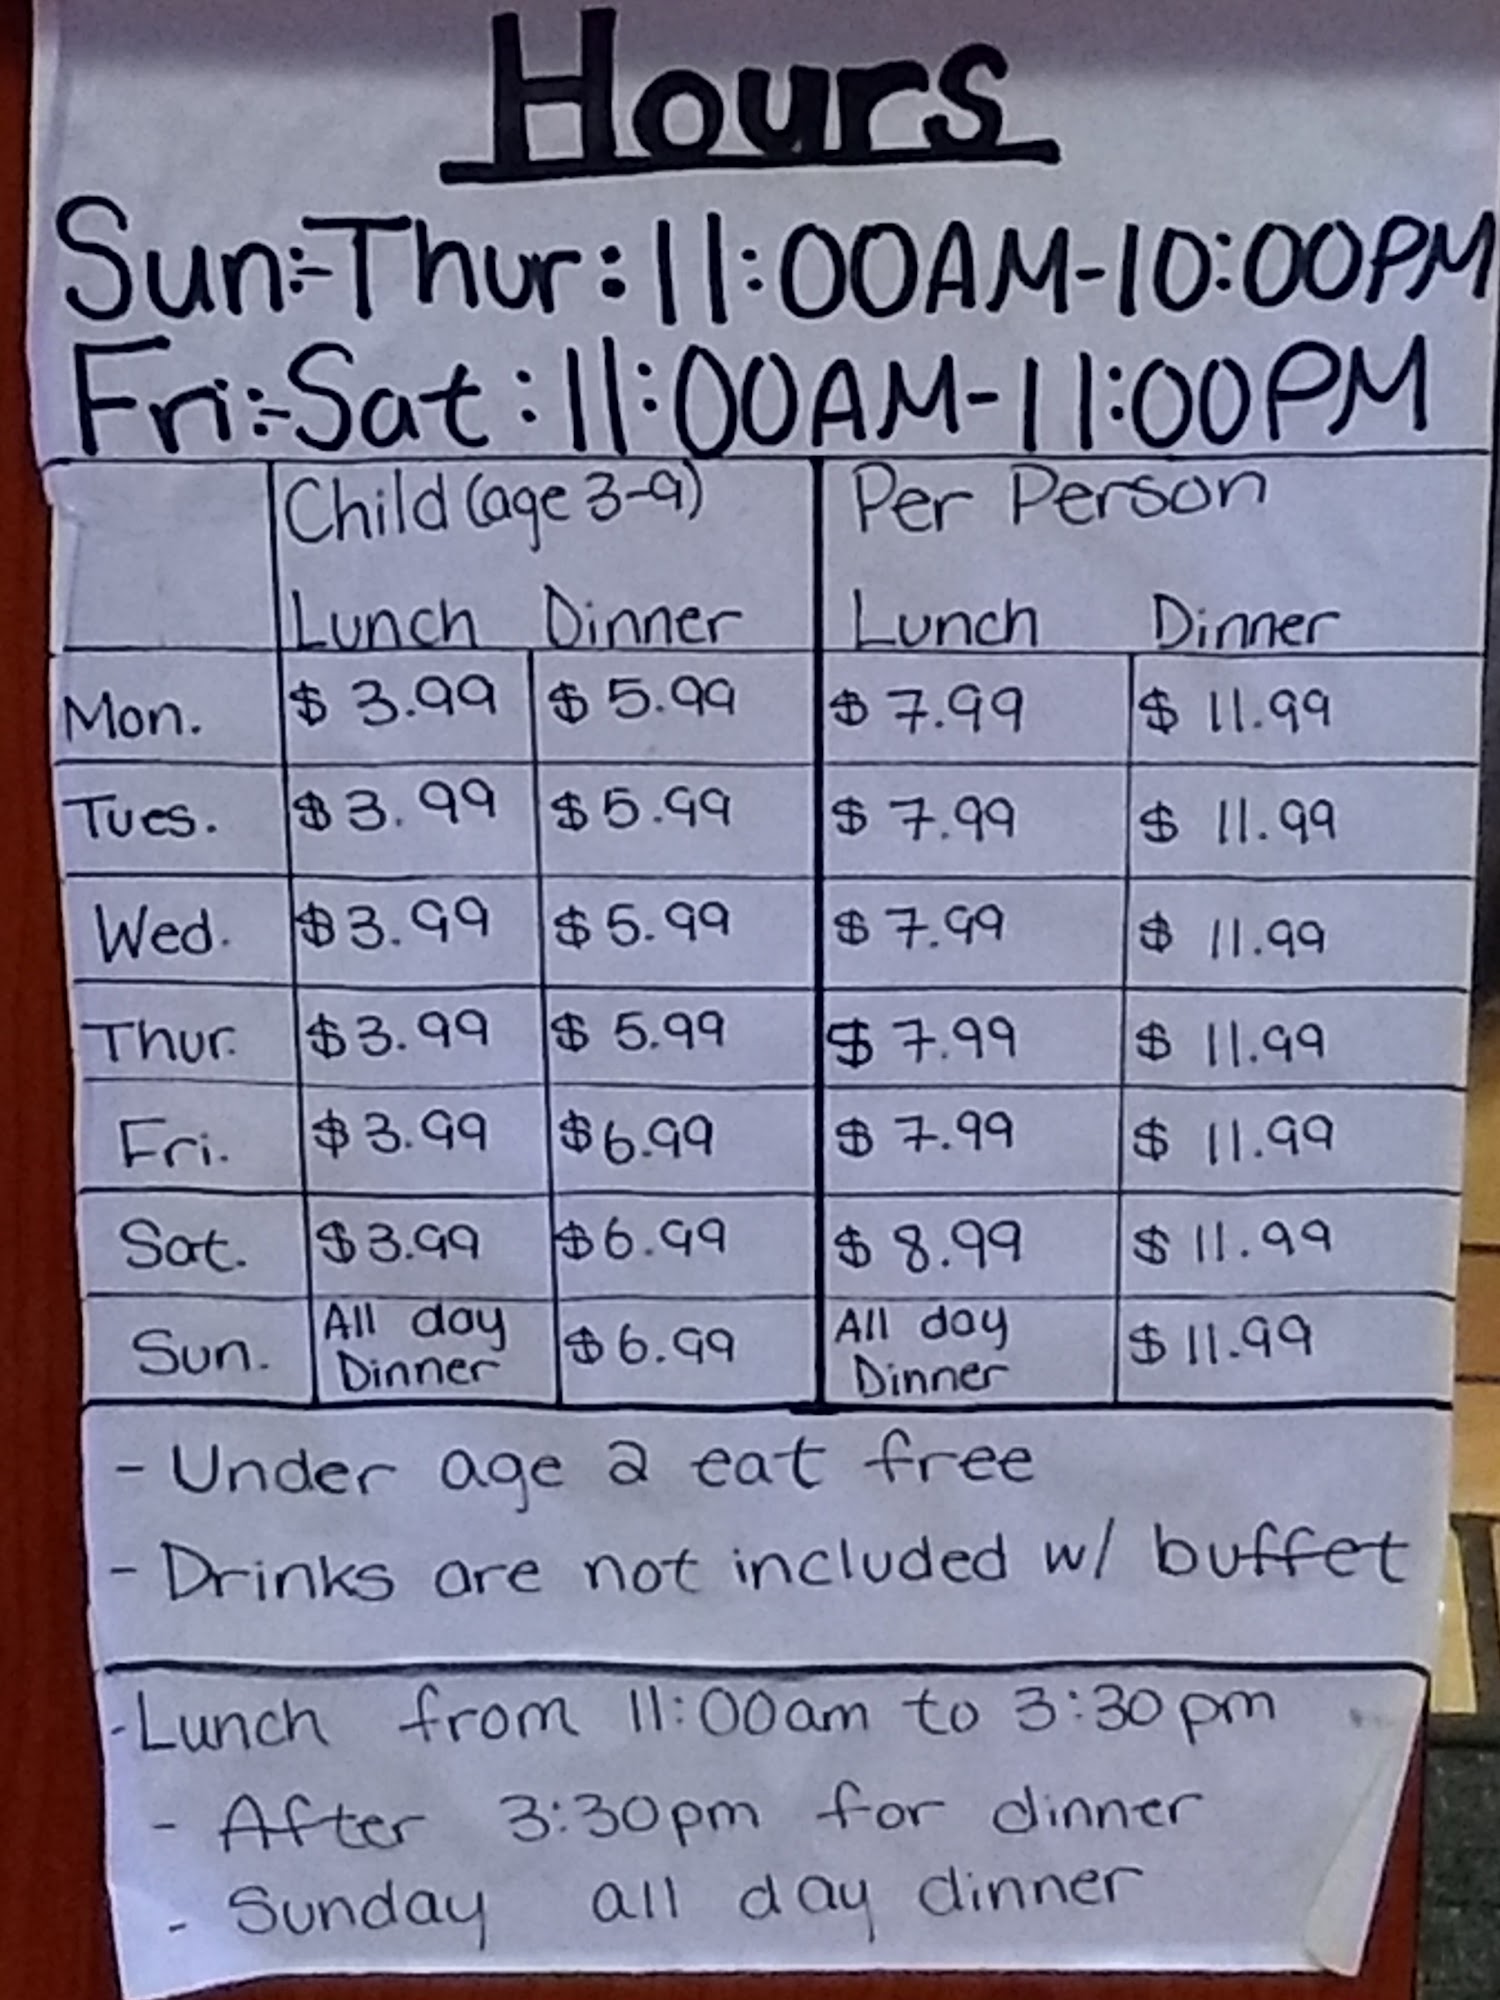 Hours
Sun:-Thur:11:00AM-10:00PM
Fri:-Sat:11:00AM-11:00PM
Child (age 3-9) Per Person
Lunch Dinner Lunch Dinner
Mon. $3.99 $5.99 $7.99 $11.99
Tues. $3.99 $5.99 $7.99 $11.99
Wed. $3.99 $5.99 $7.99 $11.99
Thur. $3.99 $5.99 $7.99 $11.99
Fri. $3.99 $6.99 $7.99 $11.99
Sat. $3.99 $6.99 $8.99 $11.99
Sun. All day Dinner $6.99 All day Dinner $11.99
- Under age 2 eat free
- Drinks are not included w/ buffet
- Lunch from 11:00am to 3:30pm
- After 3:30pm for dinner
- Sunday all day dinner